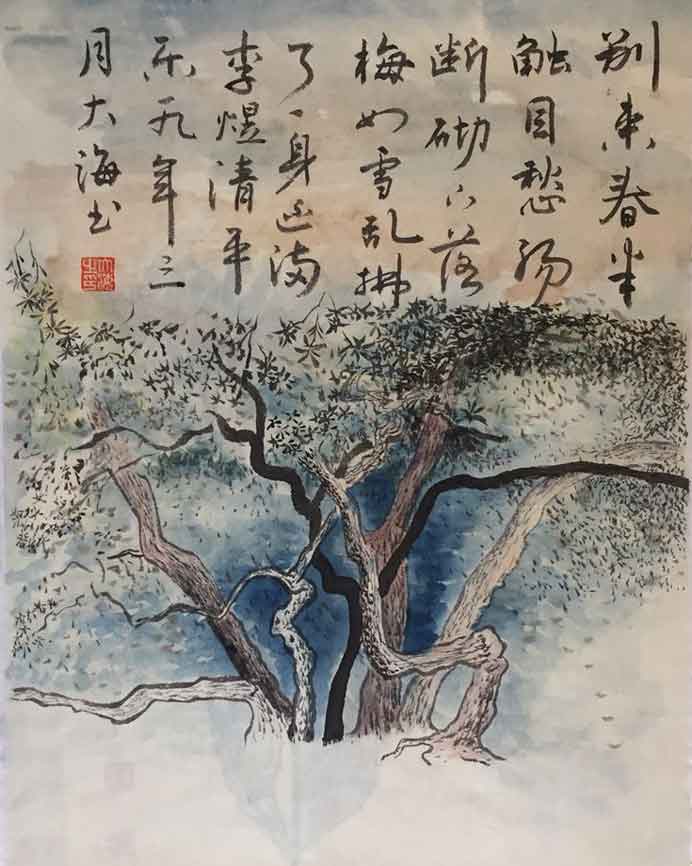 别来春半
触目愁肠
断砌下落
梅如雪乱拂
了一身还满
李煜清平
乐九年三
月大海书